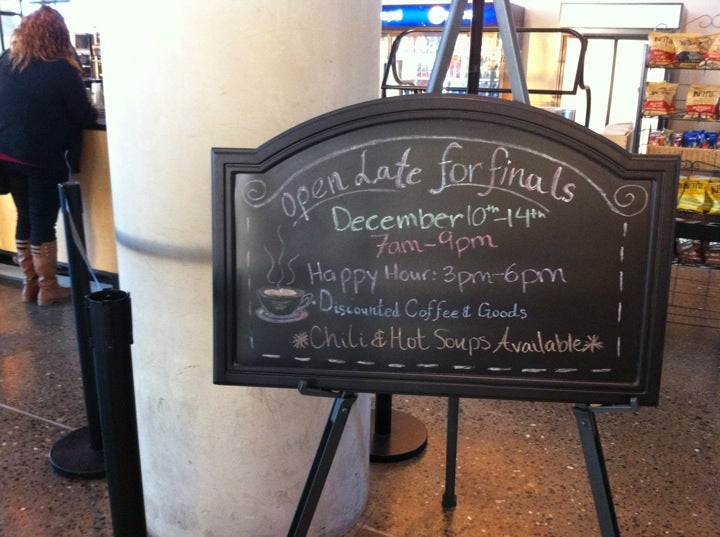 Open Late for finals
December 10th-14th
7am-9pm
Happy Hour: 3pm-6pm
Discounted Coffee & Goods
*Chili & Hot Soups Available*